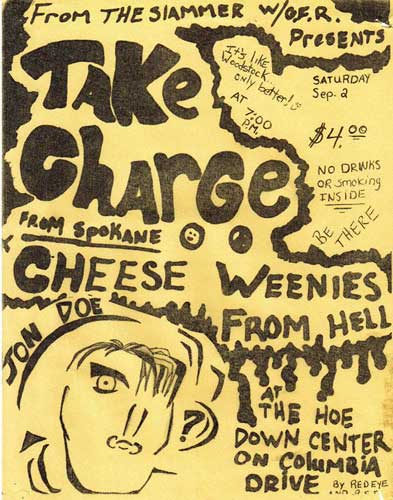 From THE SLAMMER W/G.F.R.
Presents
Take
Charge
It's like
Woodstock...
only better!
AT
7:00
P.M.
SATURDAY
Sep. 2
$4.00
NO DRINKS
OR smoking
INSIDE
BE THERE
FROM SPOKANE
CHEESE WEENIES
FROM HELL
JON DOE
?
AT
THE HOE
DOWN CENTER
ON COLUMBIA
DRIVE
BY REDEYE